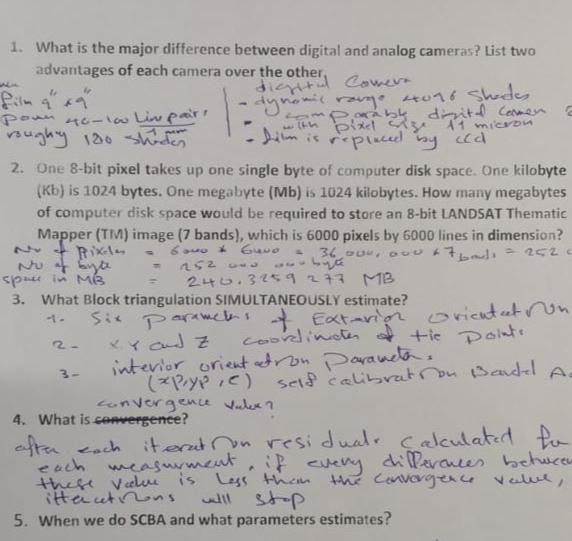 1. What is the major difference between digital and analog cameras? List two
advantages of each camera over the other
digital Camera
film 9" x 9"
- dynamic range 4096 Shades
power 40-100 Line pairs
- comparable digital camera
with pixel size 11 micron
roughy 180 shades
- film is replaced by ccd
2. One 8-bit pixel takes up one single byte of computer disk space. One kilobyte
(Kb) is 1024 bytes. One megabyte (Mb) is 1024 kilobytes. How many megabytes
of computer disk space would be required to store an 8-bit LANDSAT Thematic
Mapper (TM) image (7 bands), which is 6000 pixels by 6000 lines in dimension?
No of Pixels = 6000 * 6000 = 36 000, 000 * 7 bands = 252
No of byte = 252 000 000 byte
space in MB = 240.3259 277 MB
3. What Block triangulation SIMULTANEOUSLY estimate?
1- Six parameters of Exterior orientation
2- X Y and Z coordinates of tie Points
3- interior orientation Parameters
(xp, yp, c) self calibration
convergence value?
4. What is convergence?
after each iteration residuals calculated for
each measurment, if every differences between
these value is less than the convergence value,
itterations will stop
5. When we do SCBA and what parameters estimates?